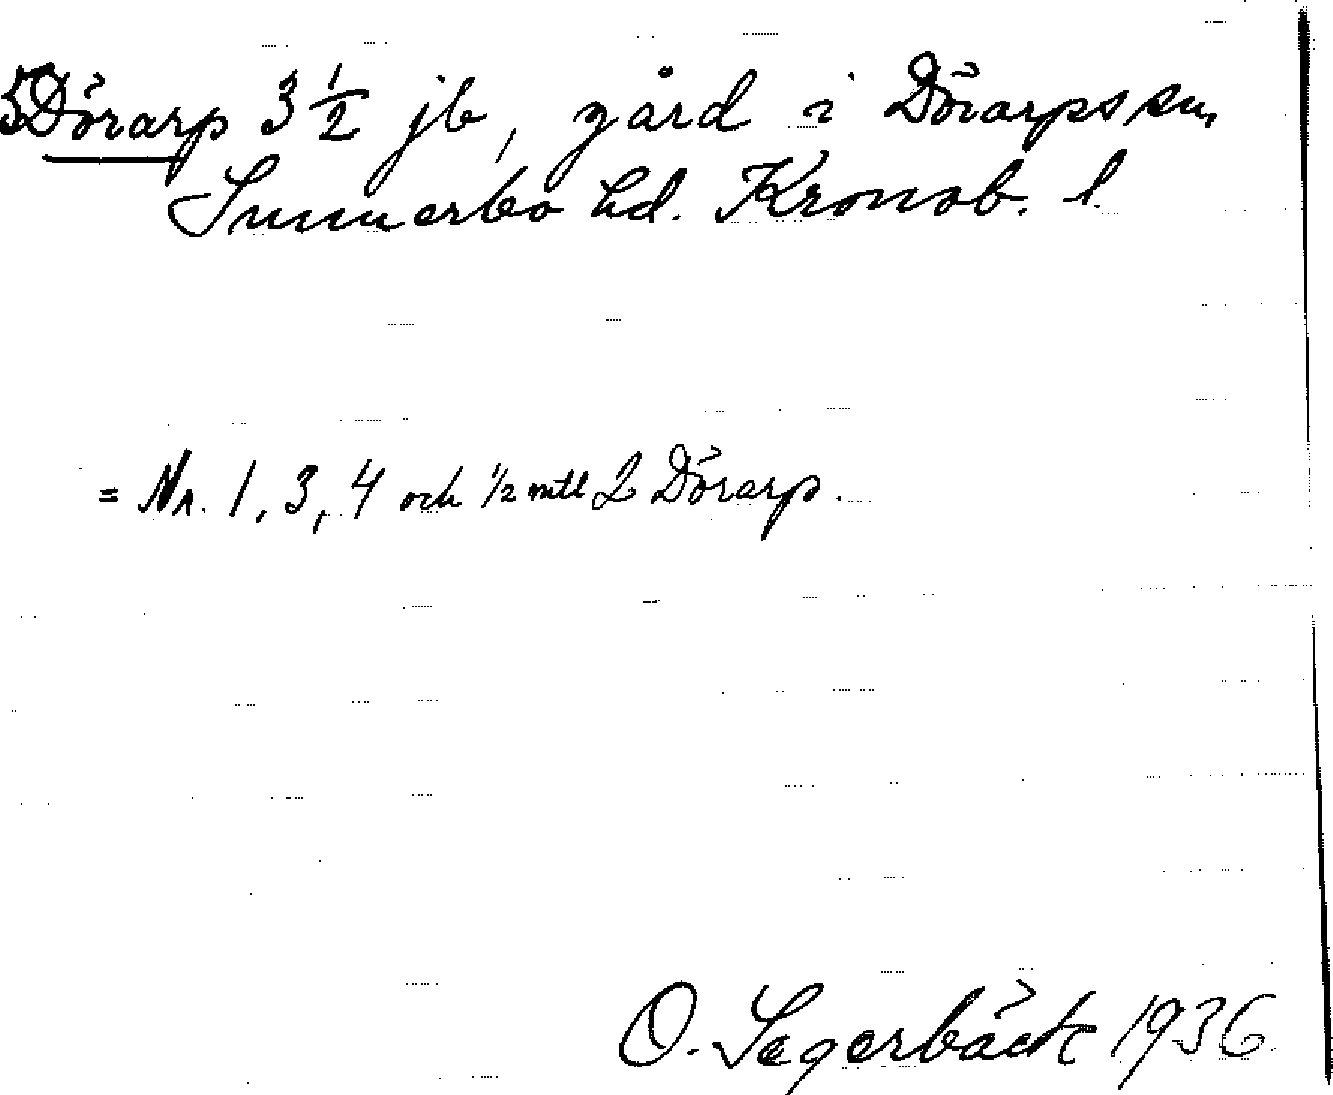 5 Dörarp 3 1/2 jb, gård i Dörarps sn,
Sunnerbo hd. Kronob. l.
= Nr. 1, 3, 4 och 1/2 mtl 2 Dörarp.
O. Segerbäck 1936